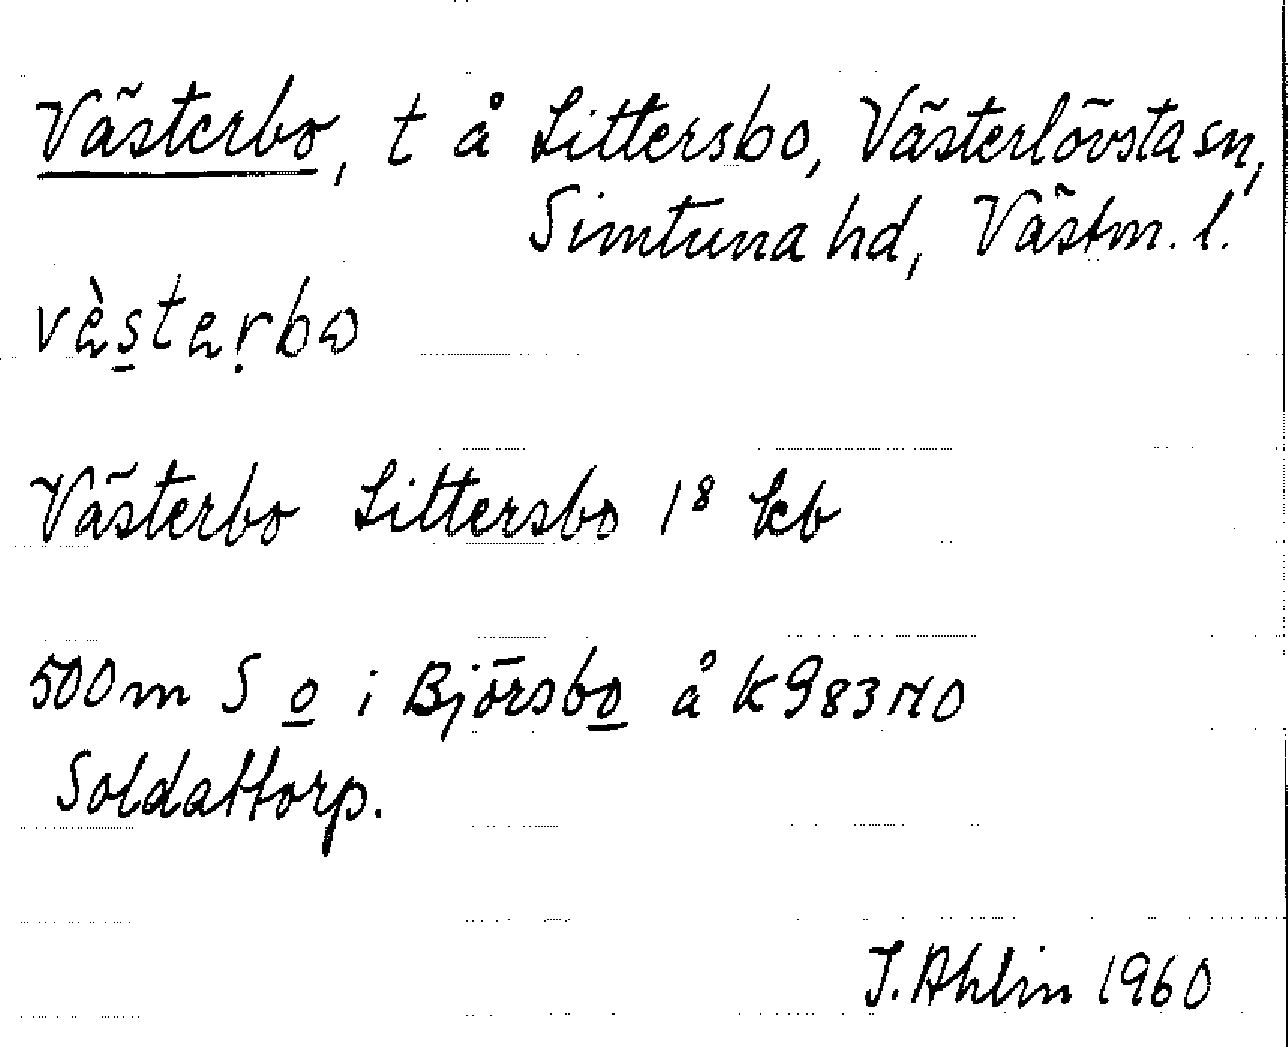 Västerbo, t å Littersbo, Västerlövsta sn,
Simtuna hd, Västm. l.
vèstạrbω
Västerbo Littersbo 1⁸ kb
500m S o i Björsbo å K983NO
Soldattorp.
J. Ahlin 1960